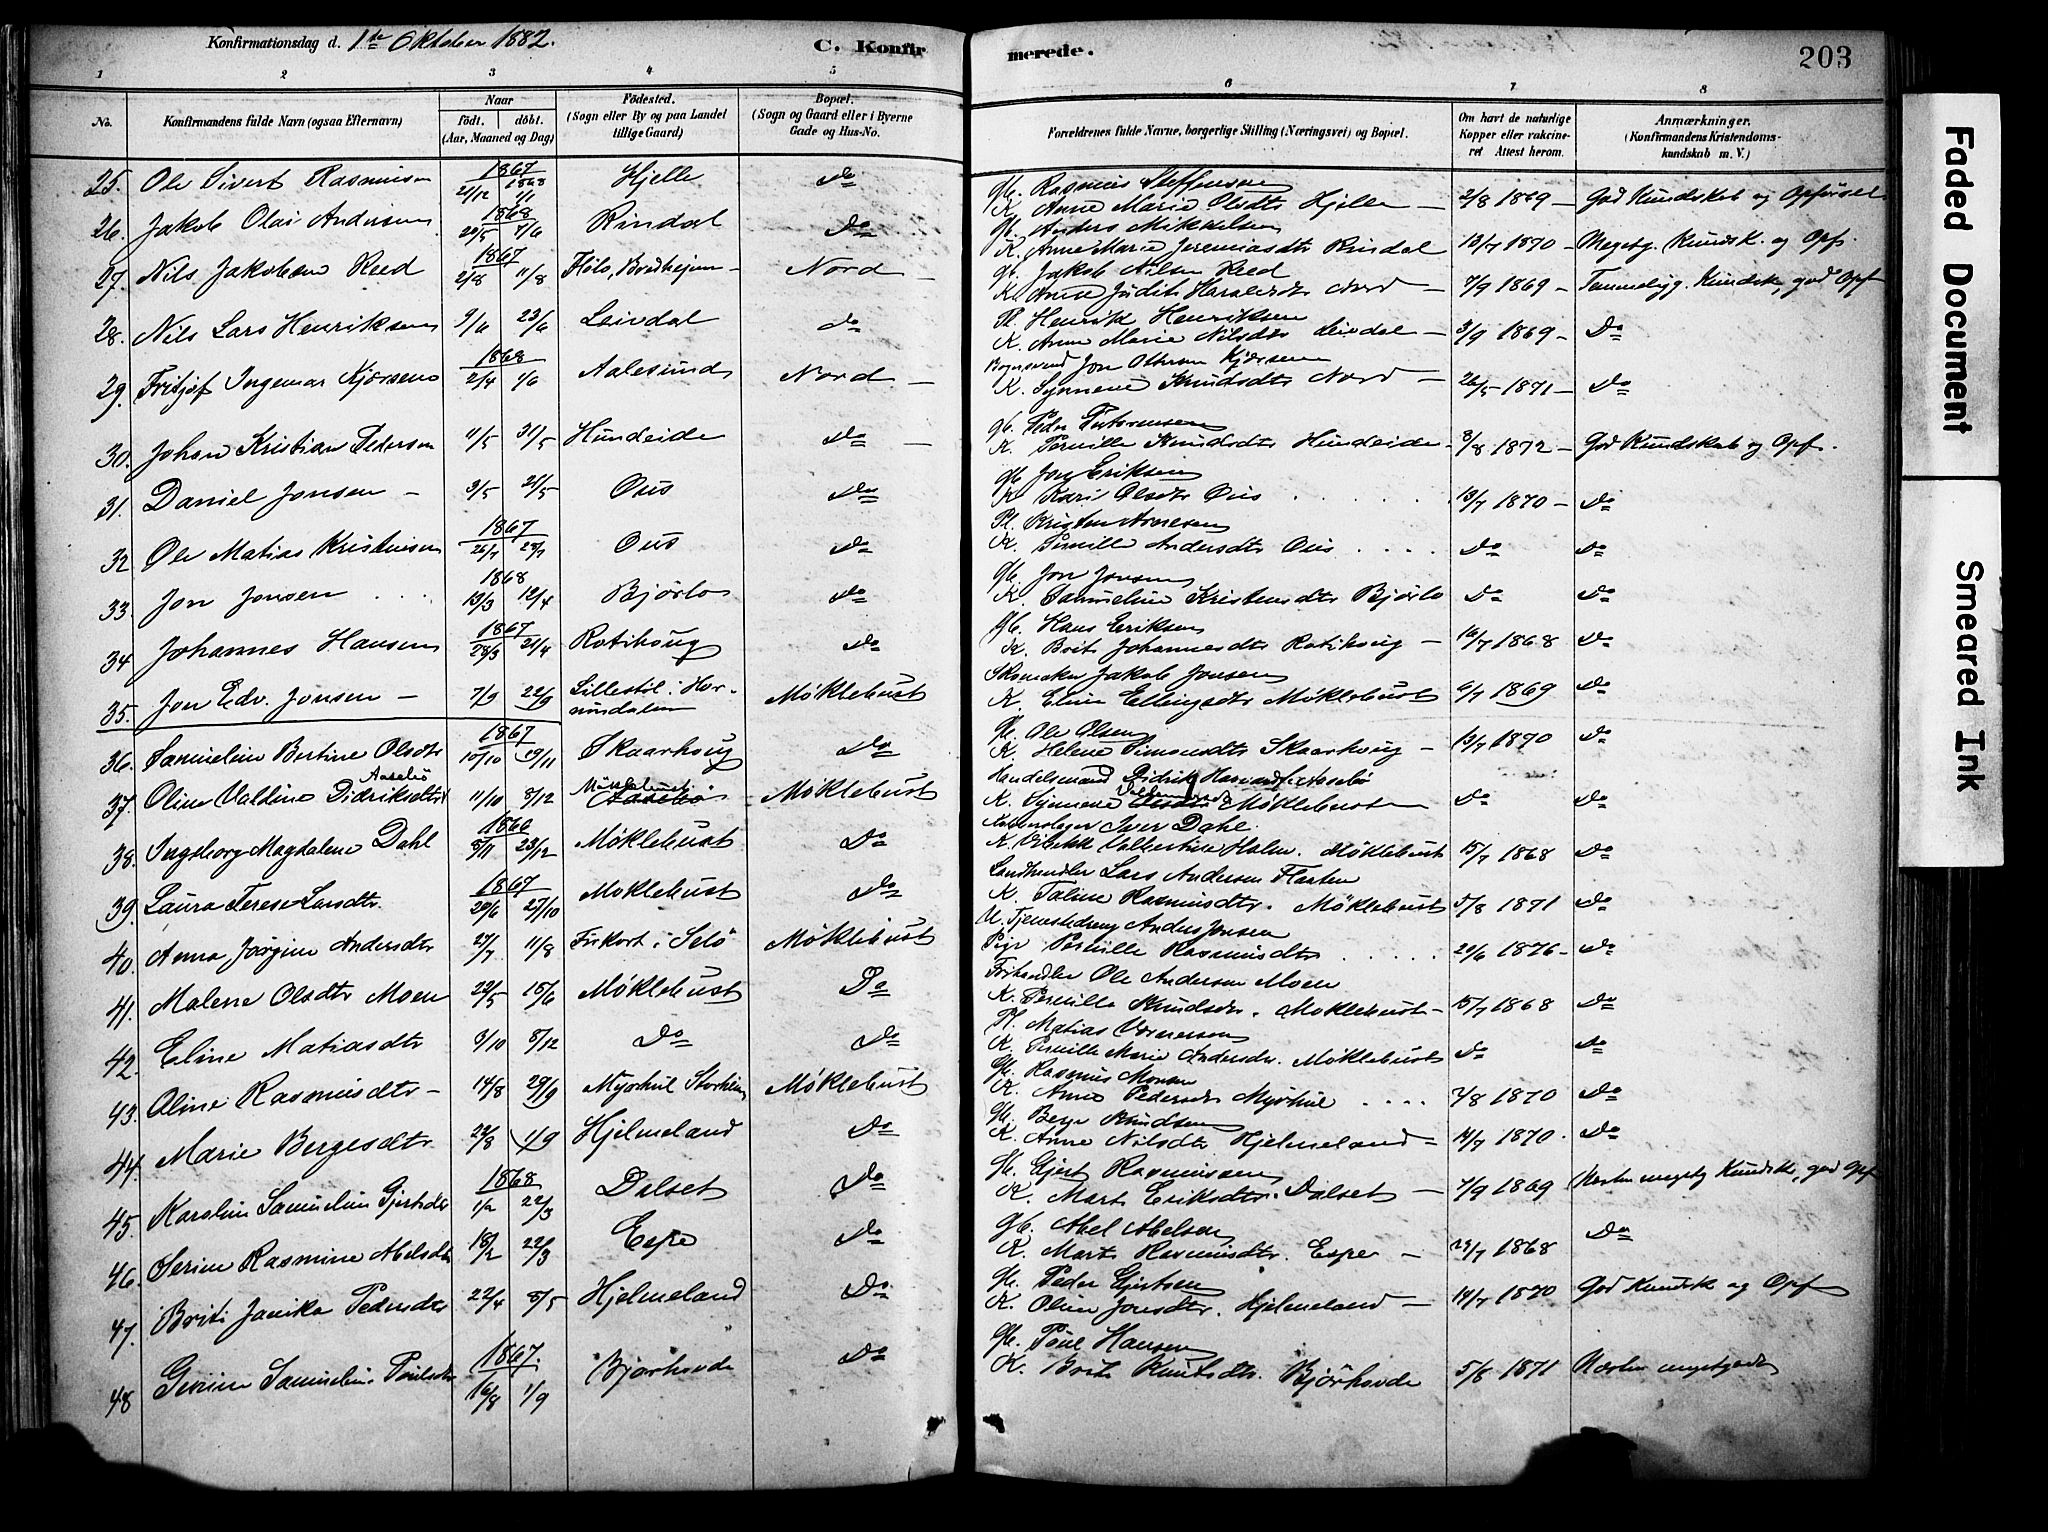 Konfirmationsdag d. 1ste Oktober 1882.
C. Konfirmerede.
203
1 2 3 4 5 6 7 8
No.
Konfirmandens fulde Navn (ogsaa Efternavn)
Naar
født. døbt.
(Aar, Maaned og Dag)
Fødested.
(Sogn eller By og paa Landet
tillige Gaard)
Bopæl.
(Sogn og Gaard eller i Byerne
Gade og Hus-No.
Forældrenes fulde Navne, borgerlige Stilling (Næringsvei) og Bopæl.
Om havt de naturlige
Kopper eller vakcine-
ret Attest herom.
Anmærkninger.
(Konfirmandens Kristendoms-
kundskab m. V.)
25. Ole Sivert Rasmusen 1867 21/12 1868 1/1 Hjelle Do Gbr. Rasmus Steffensen
K. Anne Marie Olsdtr Hjelle — 2/8 1869 — God Kundskab og Opførsel
26. Jakob Olai Andersen 1868 20/5 7/6 Rindal Do Gbr. Anders Mikkelsen
K. Anne Marie Jeremiasdtr Rindal 13/7 1870 — Megetg. Kundsk. og Opf.
27. Nils Jakobsen Reed 1867 2/8 11/8 Flølo, Bredhejem — Nord — Gbr. Jakob Nilsen Reed
K. Anne Judit Haraldsdtr Nord — 7/9 1869 — Temmelig g. Kundsk, god Opf
28. Nils Lars Henriksen 9/6 23/6 Leivdal Do Pl. Henrik Henriksen
K. Anne Marie Nilsdtr Leivdal — 3/9 1869 — Do
29. Fritjof Ingemar Kjørsene 1868 2/4 1/6 Aalesund Nord — Jon Kjørsene
K. Synneve Knudsdtr Nord — 26/5 1871 — Do
30. Johan Kristian Pedersen 11/5 31/5 Hundeide Do — Gbr. Peder
K. Pernille Knudsdtr Hundeide — 8/8 1872 — God Kundskab og Opf.
31. Daniel Jonsen — 3/5 21/5 Ous Do Gbr Jon Eriksen
K. Kari Olsdtr Ous . . . . 13/7 1870 — Do
32 Ole Matias Kristensen 1867 26/7 28/7 Ous Do Pl. Kristen Arnesen
K. Pernille Andersdtr Ous . . . . Do Do
33. Jon Jonsen . . . 1868 13/3 12/4 Bjørlo Do Gbr. Jon Jonsen
K. Samueline Kristensdtr Bjørlo Do Do
34 Johannes Hansen 1867 28/3 21/4 Rotihoug Do Gbr. Hans Eriksen
K. Brit Johannesdtr Rotihoug — 16/7 1868 Do
35. Jon Edv. Jonsen — 7/9 22/9 Lillestøl i Hor-
nindalen Møklebust Skomaker Jakob Jonsen
K. Eline Ellingsdtr Møklebust 6/7 1869 Do
36. Samueline Bertine Olsdtr 1867 10/10 10/11 Skaarhoug Do Gbr. Ole Olsen
K. Helene Simonsdtr Skaarhoug — 13/7 1870 Do
37. Oline Valdine Didriksdtr Aasebø 11/10 8/12 Møklebust Aasebø — Møklebust Handelsmand Didrik Aasebø
K. Synneve Møklebust — Do Do
38. Ingeborg Magdalene Dahl 1866 8/11 23/12 Møklebust Do Kobberslager Iver Dahl.
K. Vibekke Holm. Møklebust 15/7 1868 Do
39. Laura Terese Larsdtr. 1867 29/6 27/10 Møklebust Do Landhandler Lars Andersen Flaten
K. Taline Rasmusdtr. Møklebust 5/8 1871 Do
40. Anna Jørgine Andersdtr 27/7 11/8 Friskort i Selø Møklebust U. Tjenestedreng Anders Jonsen
Pige Pernille Rasmusdtr . . . . . 20/6 1876 — Do
41. Malene Olsdtr Moen 22/5 15/6 Møklebust Do Ole Andersen Moen
K. Pernille Knudsdtr. Møklebust — 15/7 1868 Do
42. Eline Matiasdtr 9/10 8/12 Do Do Pl. Matias
K. Pernille Marie Andersdtr. Møklebust Do Do
43. Oline Rasmusdtr — 14/8 29/9 Myrhul Storheim Møklebust Gbr. Rasmus Monsen
K. Anne Pedersdtr Myrhul . . . . 7/8 1870 Do
44. Marie Bergesdtr 22/8 1/9 Hjelmeland Do Gbr. Berge Knudsen
K. Anne Nilsdtr Hjelmeland — 14/7 1870. Do
45. Karoline Samueline Gjertsdtr 1868 1/2 22/3 Dalset Do Gbr. Gjert Rasmussen
K. Marte Eriksdtr. Dalset — 7/9 1869 Næsten megetg Kundsk., god Opf
46. Serine Rasmine Abelsdtr 18/2 22/3 Espe Do Gbr. Abel Abelsen
K. Marte Rasmusdtr. Espe — 23/7 1868 Do
47. Brite Janikke Pedersdtr 22/4 8/5 Hjelmeland Do Gbr. Peder Gjertsen
K. Oline Jonsdtr. Hjelmeland — 14/7 1870 God Kundsk og Opf
48 Gurine Samueline Poulsdtr 1867. 16/8 1/9 Bjørhovde Do Gbr. Poul Hansen
K. Brite Knutsdtr. Bjørhovde 5/8 1871 Næsten megetgod
Faded Document
Smeared Ink